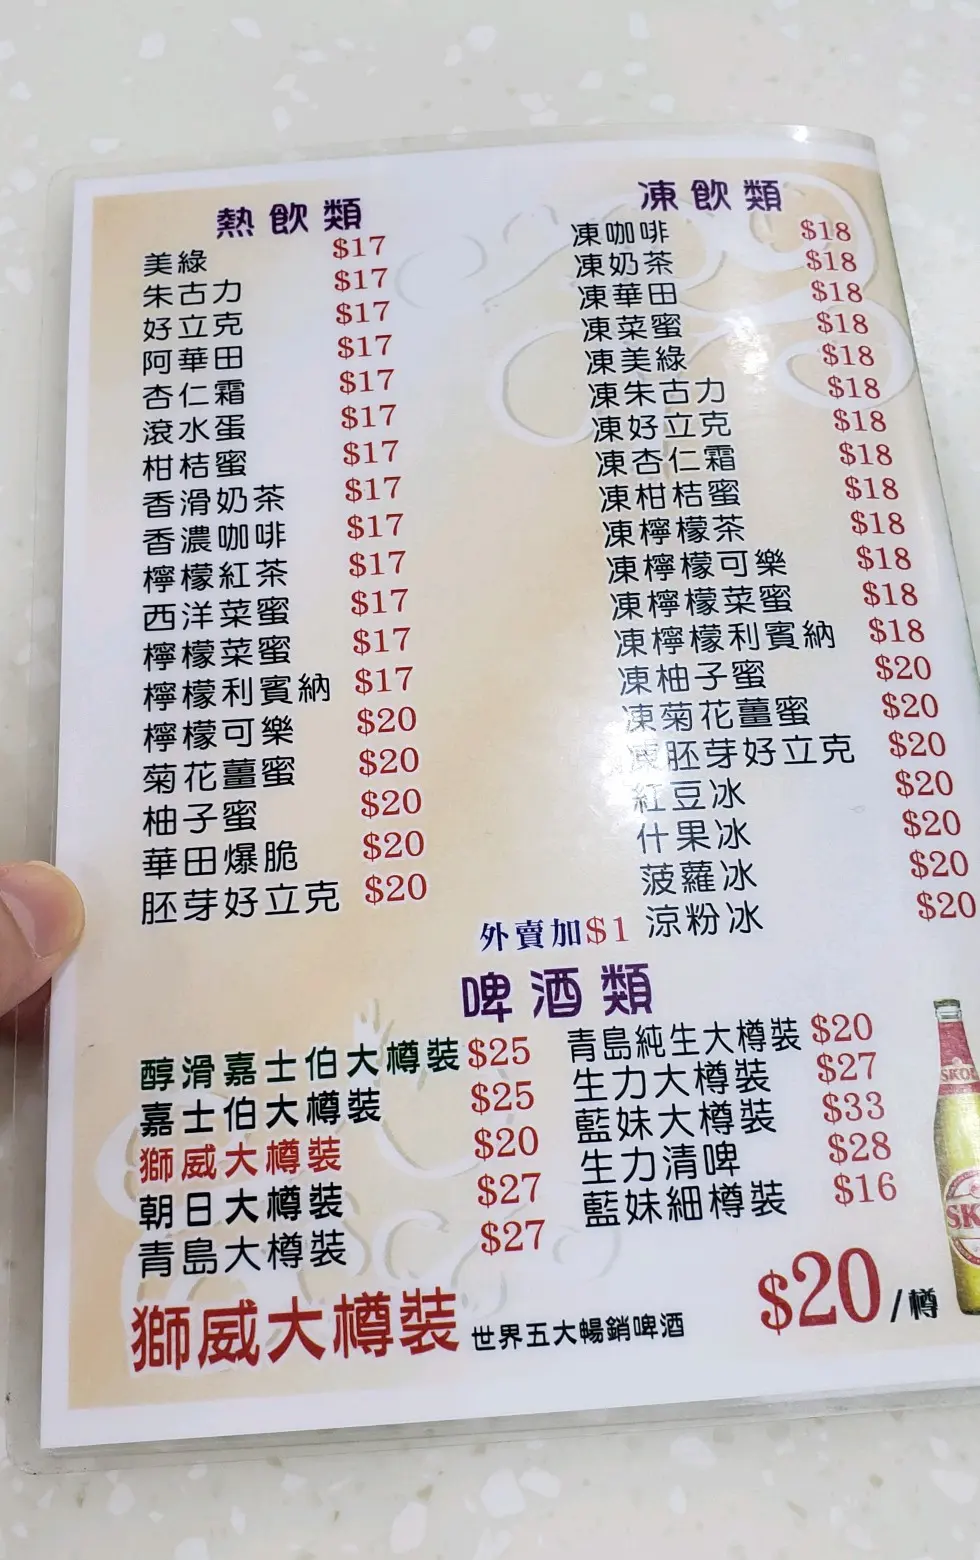 熱飲類
美綠 $17
朱古力 $17
好立克 $17
阿華田 $17
杏仁霜 $17
滾水蛋 $17
柑桔蜜 $17
香滑奶茶 $17
香濃咖啡 $17
檸檬紅茶 $17
西洋菜蜜 $17
檸檬菜蜜 $17
檸檬利賓納 $17
檸檬可樂 $20
菊花薑蜜 $20
柚子蜜 $20
華田爆脆 $20
胚芽好立克 $20
凍飲類
凍咖啡 $18
凍奶茶 $18
凍華田 $18
凍菜蜜 $18
凍美綠 $18
凍朱古力 $18
凍好立克 $18
凍杏仁霜 $18
凍柑桔蜜 $18
凍檸檬茶 $18
凍檸檬可樂 $18
凍檸檬菜蜜 $18
凍檸檬利賓納 $18
凍柚子蜜 $20
凍菊花薑蜜 $20
凍胚芽好立克 $20
紅豆冰 $20
什果冰 $20
菠蘿冰 $20
涼粉冰 $20
外賣加$1
啤酒類
醇滑嘉士伯大樽裝 $25
嘉士伯大樽裝 $25
獅威大樽裝 $20
朝日大樽裝 $27
青島大樽裝 $27
青島純生大樽裝 $20
生力大樽裝 $27
藍妹大樽裝 $33
生力清啤 $28
藍妹細樽裝 $16
獅威大樽裝 世界五大暢銷啤酒 $20/樽